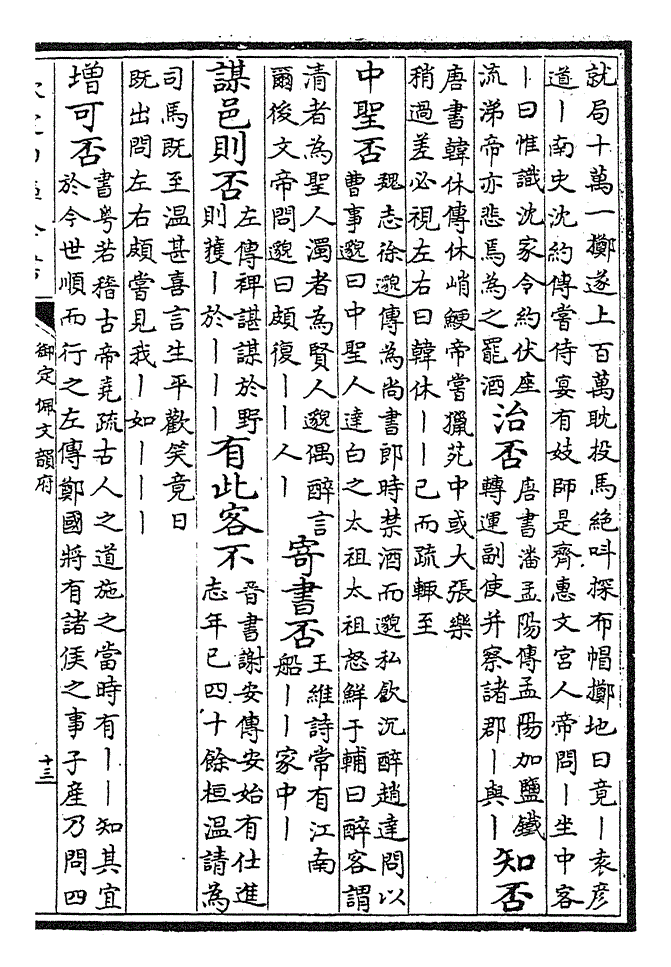 就局十萬一擲遂上百萬耽投馬絶叫探布帽擲地曰竟丨袁彦
道丨南史沈約傳嘗侍宴有妓師是齊惠文宮人帝問丨坐中客
丨曰惟識沈家令約伏座
流涕帝亦悲焉為之罷酒
治否
唐書潘孟陽傳孟陽加鹽鐵
轉運副使并察諸郡丨與丨
知否
唐書韓休傳休峭鯁帝嘗獵苑中或大張樂
稍過差必視左右曰韓休丨丨已而疏輒至
中聖否
魏志徐邈傳為尚書郎時禁酒而邈私飲沉醉趙達問以
曹事邈曰中聖人達白之太祖太祖怒鮮于輔曰醉客謂
清者為聖人濁者為賢人邈偶醉言
爾後文帝問邈曰頗復丨丨人丨
寄書否
王維詩常有江南
船丨丨家中丨
謀邑則否
左傳裨諶謀於野
則獲丨於丨丨丨
有此客不
晉書謝安傳安始有仕進
志年已四十餘桓温請為
司馬既至温甚喜言生平歡笑竟日
既出問左右頗嘗見我丨如丨丨丨
增可否
書粤若稽古帝堯疏古人之道施之當時有丨丨知其宜
於今世順而行之左傳鄭國將有諸侯之事子産乃問四
御定佩文韻府
十三